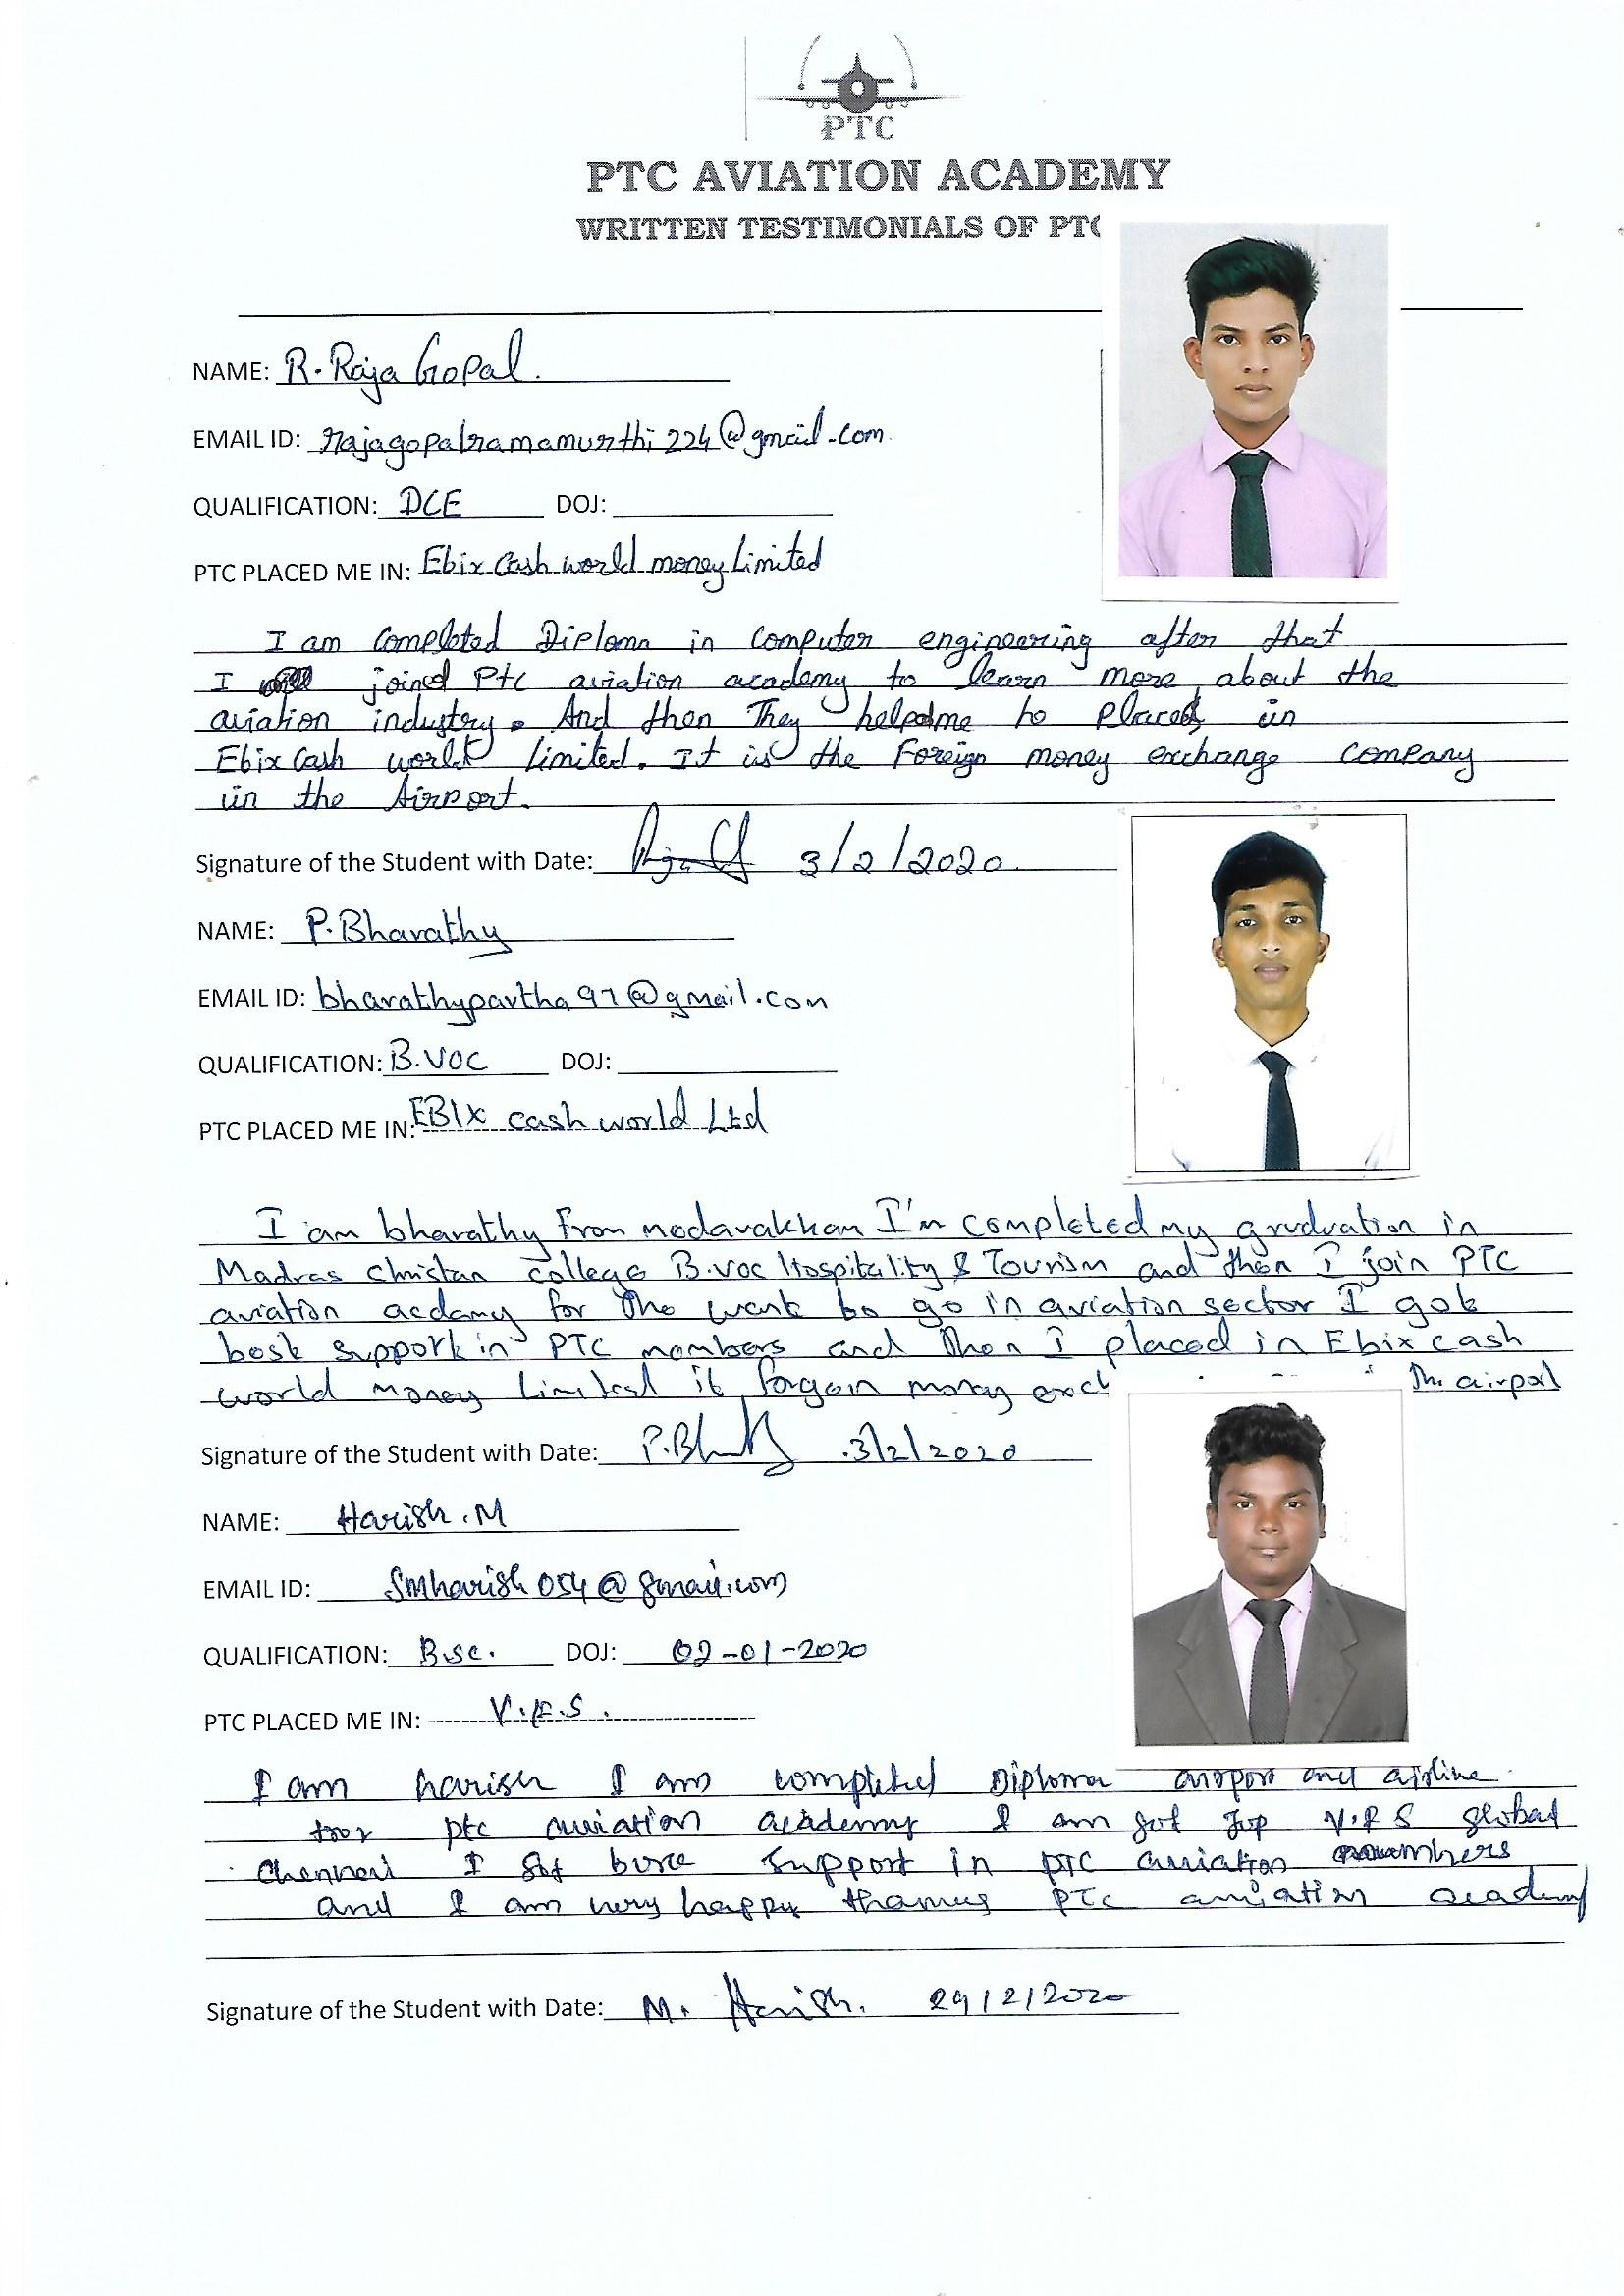 PTC
PTC AVIATION ACADEMY
WRITTEN TESTIMONIALS OF PTC
NAME: R. Raja Gopal.
EMAIL ID: rajagopalramamurthi224@gmail.com
QUALIFICATION: DCE DOJ:
PTC PLACED ME IN: Ebix Cash world money Limited
I am Completed Diploma in Computer engineering after that
I joined Ptc aviation academy to learn more about the
aviation industry. And then They helped me to placed in
Ebix Cash world limited. It is the Foreign money exchange company
in the Airport.
Signature of the Student with Date: 3/2/2020
NAME: P. Bharathy
EMAIL ID: bharathypartha97@gmail.com
QUALIFICATION: B.VOC DOJ:
PTC PLACED ME IN: EBIX cash world Ltd
I am bharathy from medavakkam I'm completed my graduation in
Madras Christan college B.voc Hospitality & Tourism and then I join PTC
aviation acdamy for the want to go in aviation sector I got
best support in PTC members and then I placed in Ebix cash
world money Limited it forgein money exch the airpot
Signature of the Student with Date: 3/2/2020
NAME: Harish. M
EMAIL ID: Smharish054@gmail.com
QUALIFICATION: B.sc. DOJ: 02-01-2020
PTC PLACED ME IN: V.F.S.
I am harish I am completed Diploma airport and airline
ptc aviation academy I am got V.F.S global
chennai I got support in PTC aviation members
and I am very happy PTC aviation academy
Signature of the Student with Date: M. Harish. 29/2/2020